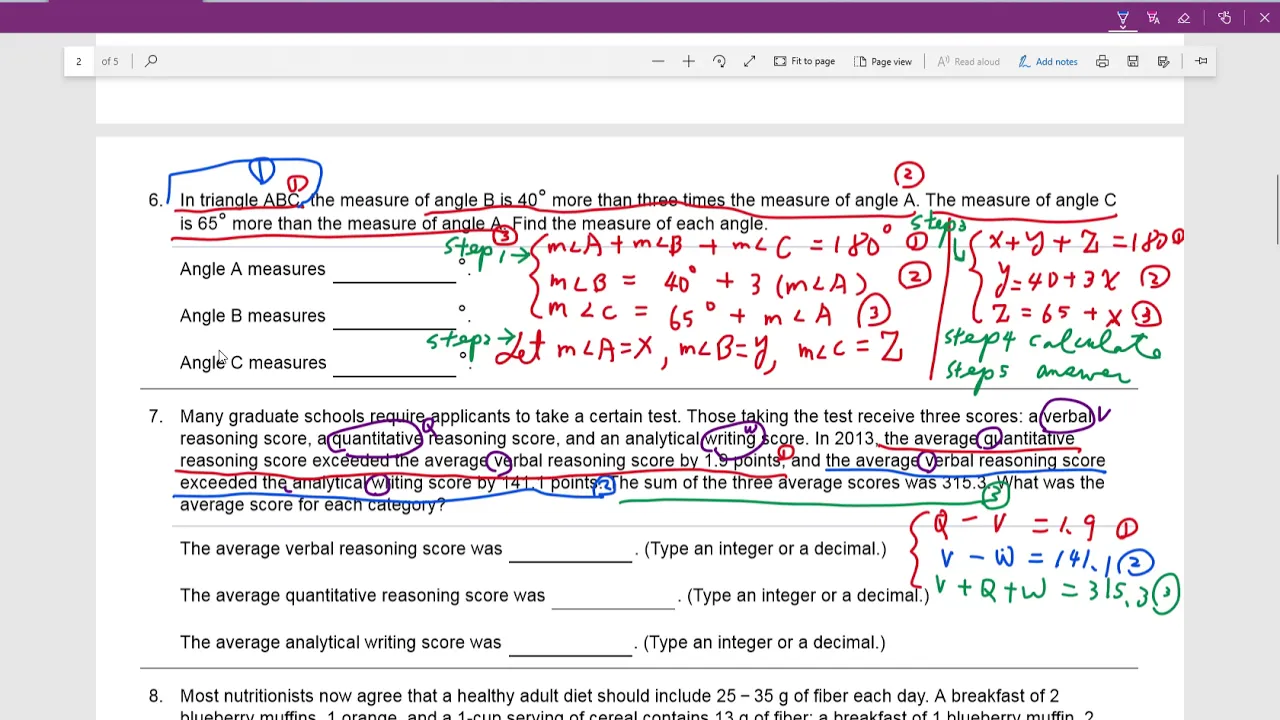 2 of 5 Fit to page Page view Read aloud Add notes
① ① ②
6. In triangle ABC, the measure of angle B is 40° more than three times the measure of angle A. The measure of angle C
is 65° more than the measure of angle A. Find the measure of each angle.
③ step1 → m∠A + m∠B + m∠C = 180° ①
step3 x + y + z = 180 ①
Angle A measures ________°.
m∠B = 40° + 3 (m∠A) ②
y = 40 + 3x ②
Angle B measures ________°.
m∠C = 65° + m∠A ③
z = 65 + x ③
step2 → Let m∠A = x, m∠B = y, m∠C = z
step4 calculate
Angle C measures ________°.
step5 answer
7. Many graduate schools require applicants to take a certain test. Those taking the test receive three scores: a verbal V
reasoning score, a quantitative Q reasoning score, and an analytical writing W score. In 2013, the average quantitative
reasoning score exceeded the average verbal reasoning score by 1.9 points, ① and the average verbal reasoning score
exceeded the analytical writing score by 141.1 points. ② The sum of the three average scores was 315.3. ③ What was the
average score for each category?
Q - V = 1.9 ①
The average verbal reasoning score was ________. (Type an integer or a decimal.)
V - W = 141.1 ②
The average quantitative reasoning score was ________. (Type an integer or a decimal.)
V + Q + W = 315.3 ③
The average analytical writing score was ________. (Type an integer or a decimal.)
8. Most nutritionists now agree that a healthy adult diet should include 25 – 35 g of fiber each day. A breakfast of 2
blueberry muffins, 1 orange, and a 1-cup serving of cereal contains 13 g of fiber; a breakfast of 1 blueberry muffin, 2